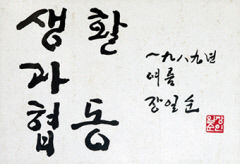 생활
과
협동
一九八九년
여름
장일순